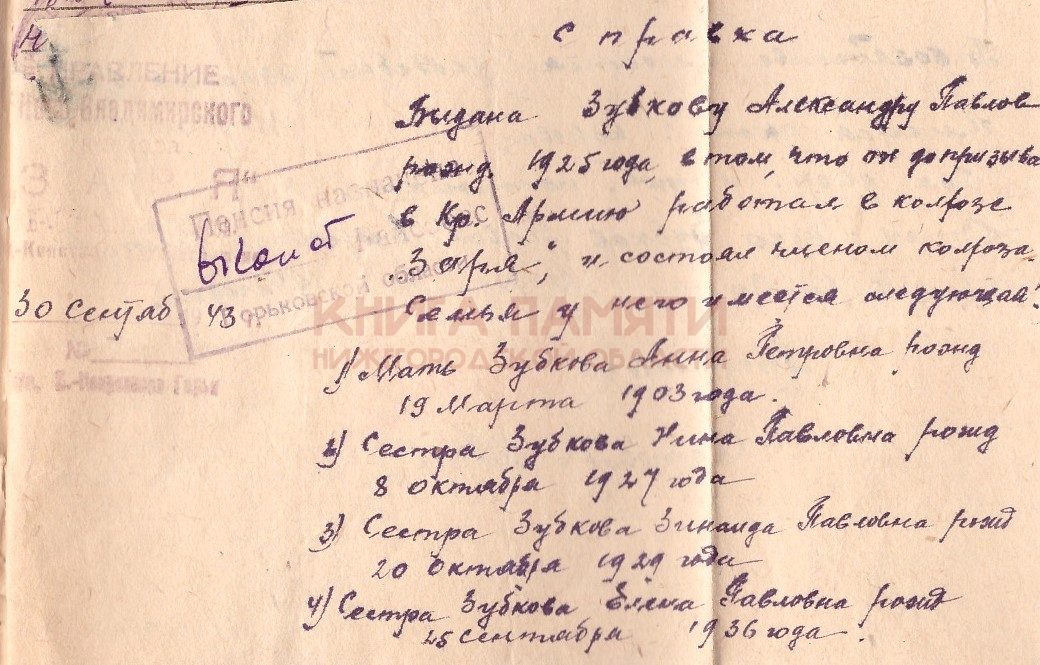 Справка
Выдана Зубкову Александру Павлов
рожд. 1925 года, в том, что он до призыва
в Кр. Армию работал в колхозе
„Заря“, и состоял членом колхоза.
Семья у него имеется следующая:
1) Мать Зубкова Анна Петровна рожд
19 Марта 1903 года.
2) Сестра Зубкова Нина Павловна рожд
8 октября 1927 года
3) Сестра Зубкова Зинаида Павловна рожд
20 октября 1929 года
4) Сестра Зубкова Елена Павловна рожд
25 сентября 1936 года.
ПРАВЛЕНИЕ
Владимирского
З Я"
30 Сентяб 43
№
Пенсия назначена
горьковской области
КНИГА ПАМЯТИ
НИЖЕГОРОДСКОЙ ОБЛАСТИ